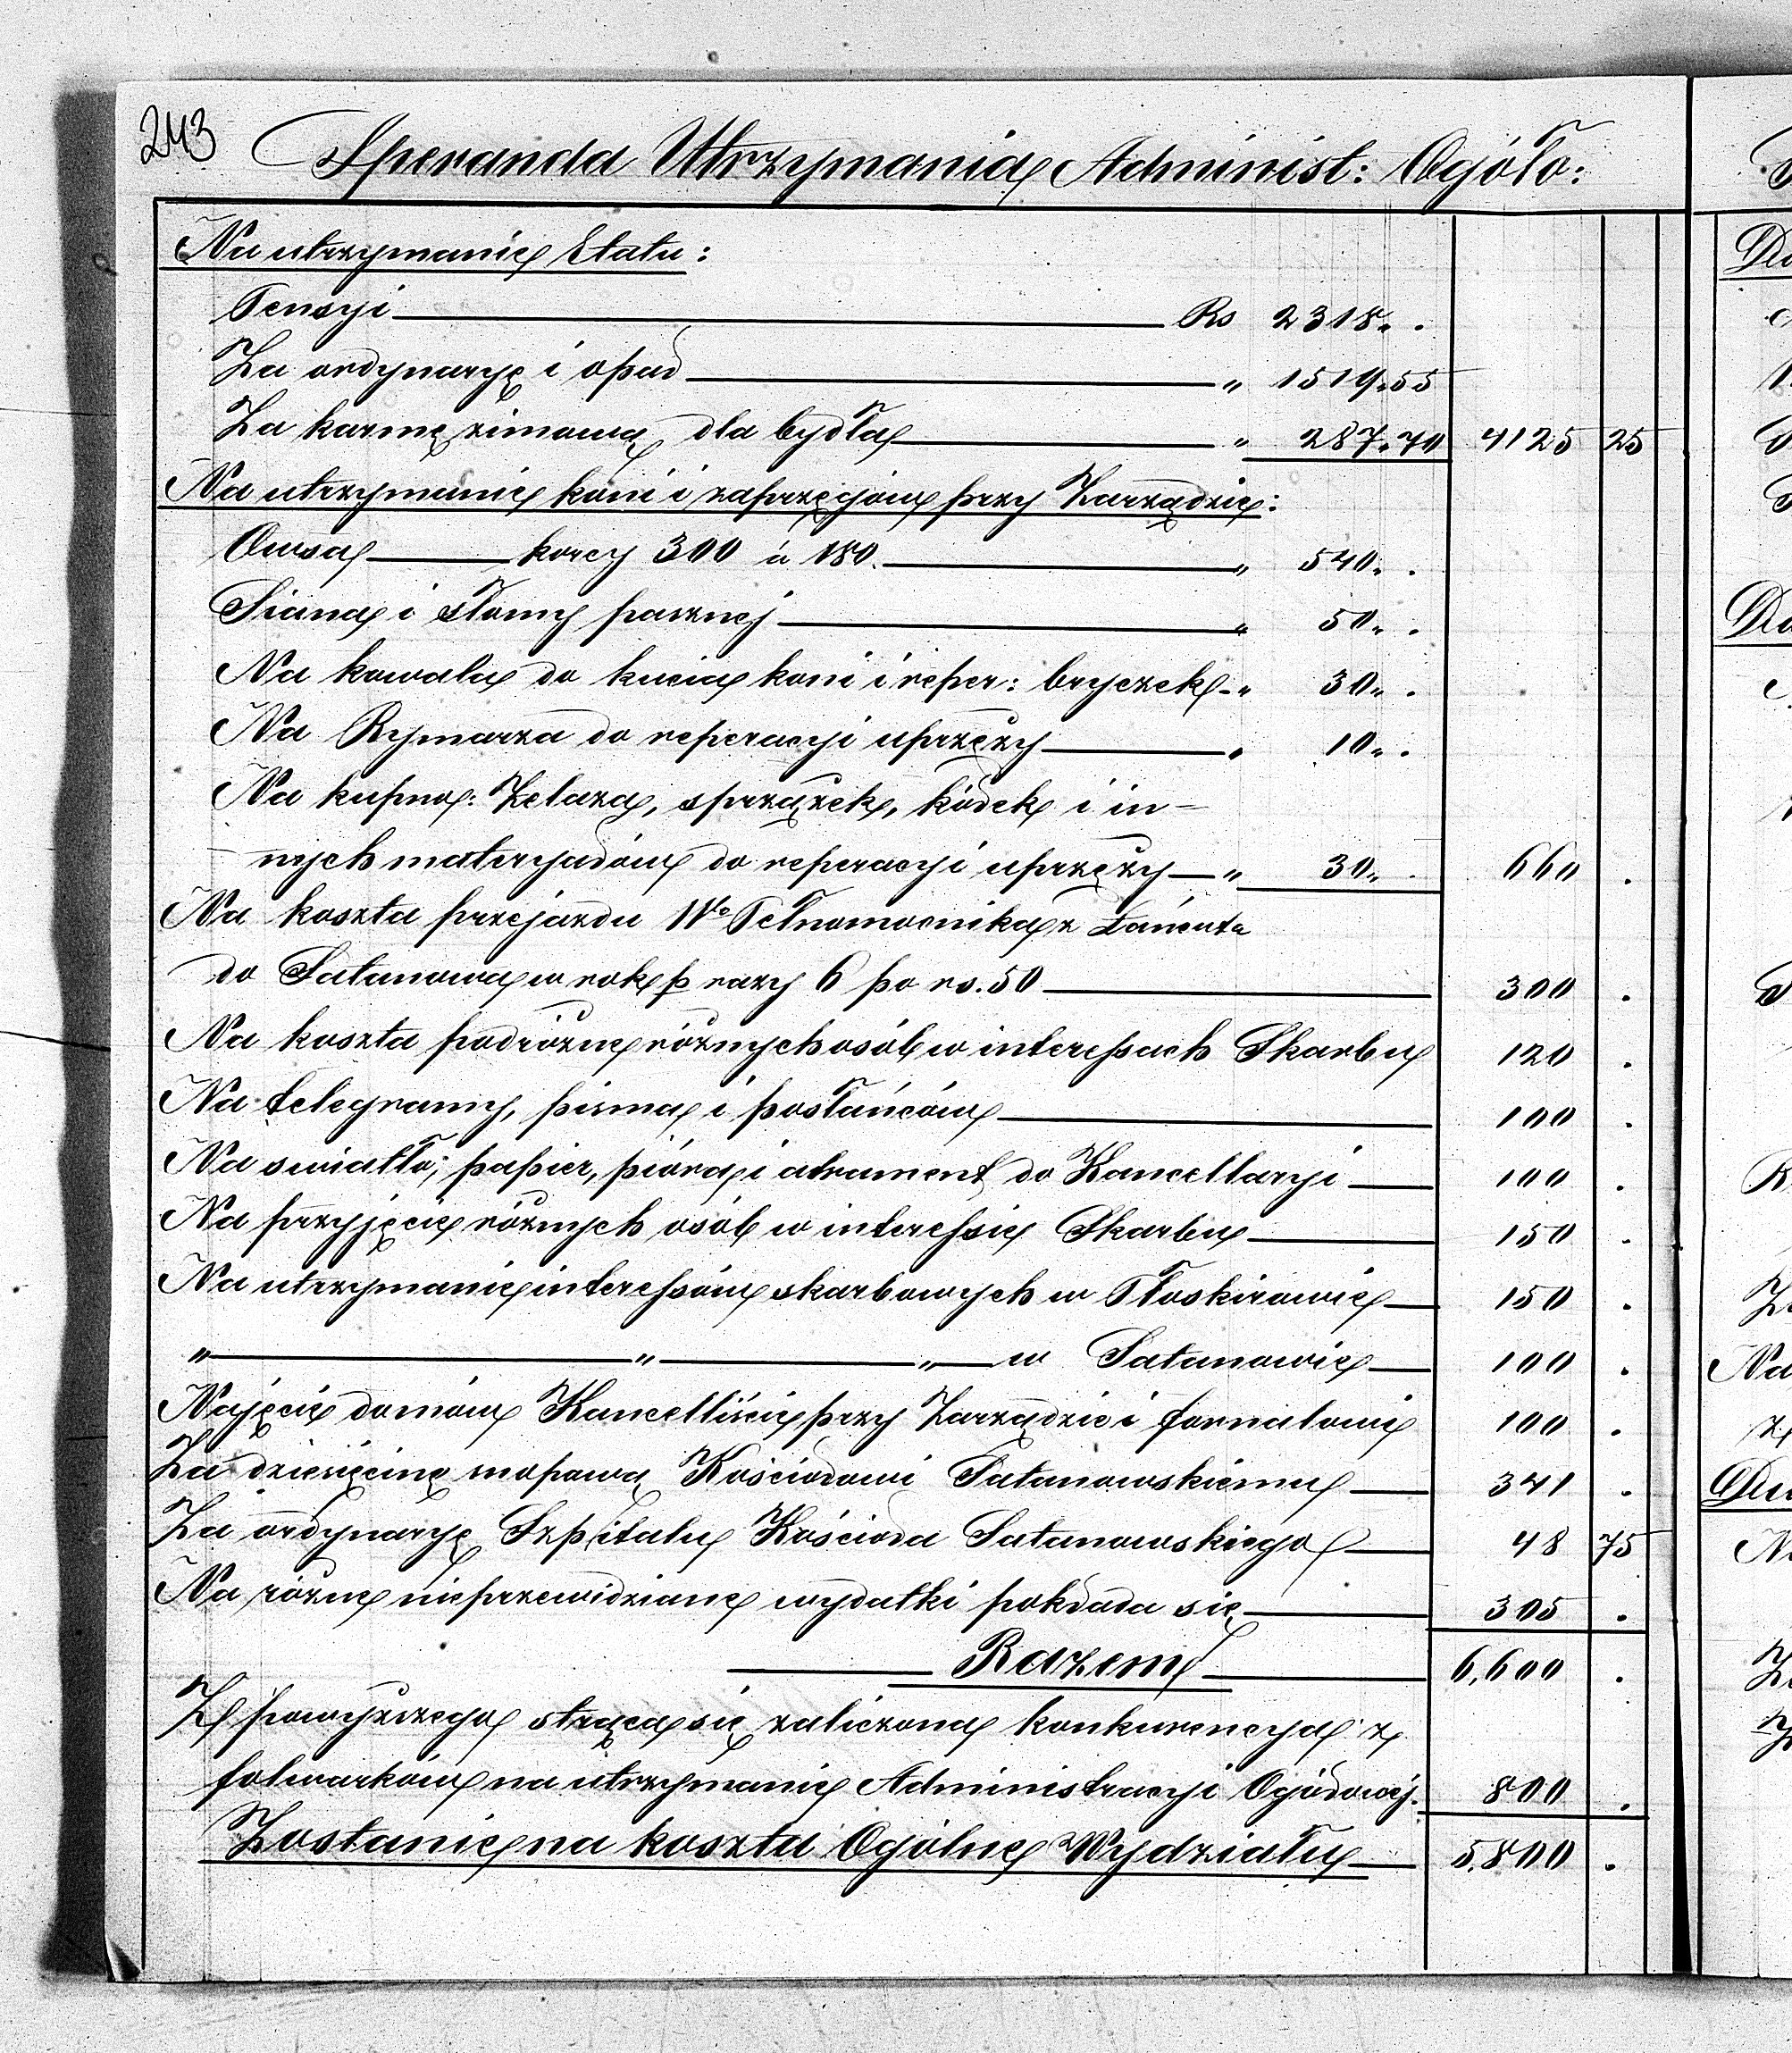 243
Speranda Utrzymania Administ: Ogóło:
Na utrzymanie Etatu:
Pensyi Rs 2318 " .
Za ordynaryę i opał " 1519 " 55
Za karmę zimową dla bydła " 287 " 70 4125 25
Na utrzymanie koni i zaprzęgów przy Zarządzie:
Owsa korcy 300 á 180. " 540 " .
Siana i słomy pasznej " 50 " .
Na kowala do kucia koni i reper: bryczek " 30 " .
Na Rymarza do reperacyi uprzęży " 10 " .
Na kupno: Żelaza, sprzążek, kółek i in-
nych materyałów do reperacyi uprzęży " 30 " . 660 .
Na koszta przejazdu Wgo Pełnomocnika z Łańcuta
do Satanowa w rok p razy 6 po rs. 50 300 .
Na koszta podróżne różnych osób w interessach Skarbu 120 .
Na telegramy, pisma i posłańców 100 .
Na swiatło; papier, pióra i atrament do Kancellaryi 100 .
Na przyjęcie różnych osób w interessie Skarbu 150 .
Na utrzymanie interessów skarbowych w Płoskirowie 150 .
" " " w Satanowie 100 .
Najęcie domów Kancelliście przy Zarządzie i fornalowi 100 .
Za dziesięcinę snopową Kościołowi Satanowskiemu 341 .
Za ordynaryę Szpitalu Kościoła Satanowskiego 48 75
Na różne nieprzewidziane wydatki pokłada się 305 .
Razem 6,600 .
Z powyższego strąca się zaliczona konkurencya z
folwarków na utrzymanie Administracyi Ogółowéj. 800 .
Zostanie na koszta Ogólne Wydziału 5,800 .